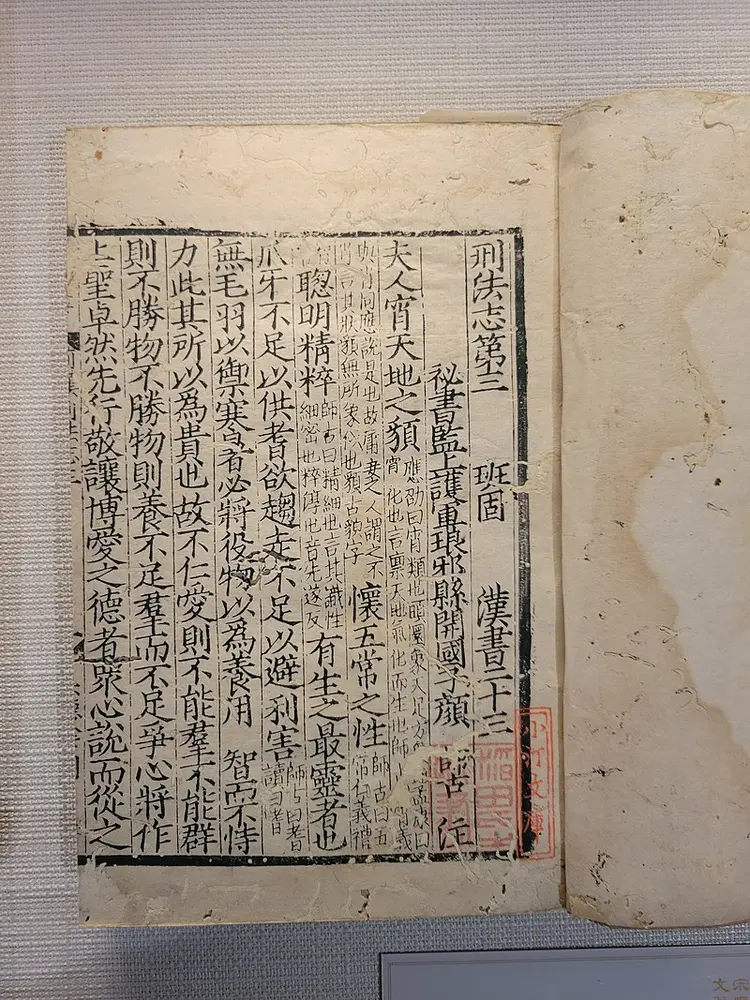 刑法志第三 班固 漢書二十三
祕書監上護軍琅邪縣開國子顔 師古 注
夫人宵天地之䫉 應劭曰宵類也頭圜象天足方
宵 化也言稟天地氣化而生也師
懷五常之性 師古曰五
常仁義禮
聰明精粹 師古曰精細也言其識性
細密也粹淳也音先遂反
有生之最靈者也
爪牙不足以供耆欲趨走不足以避利害 師古曰耆
讀曰嗜
無毛羽以禦寒暑必將役物以爲養用 智而不恃
力此其所以爲貴也故不仁愛則不能羣不能群
則不勝物不勝物則養不足羣而不足爭心將作
上聖卓然先行敬讓博愛之德者衆心說而從之
小汀文庫